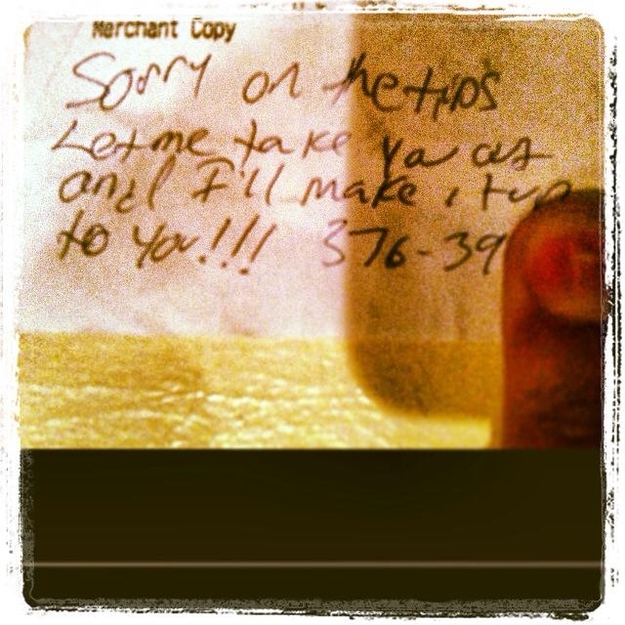 Merchant Copy
Sorry on the tips
Let me take you out
and I'll make it up
to you!!! 376-39